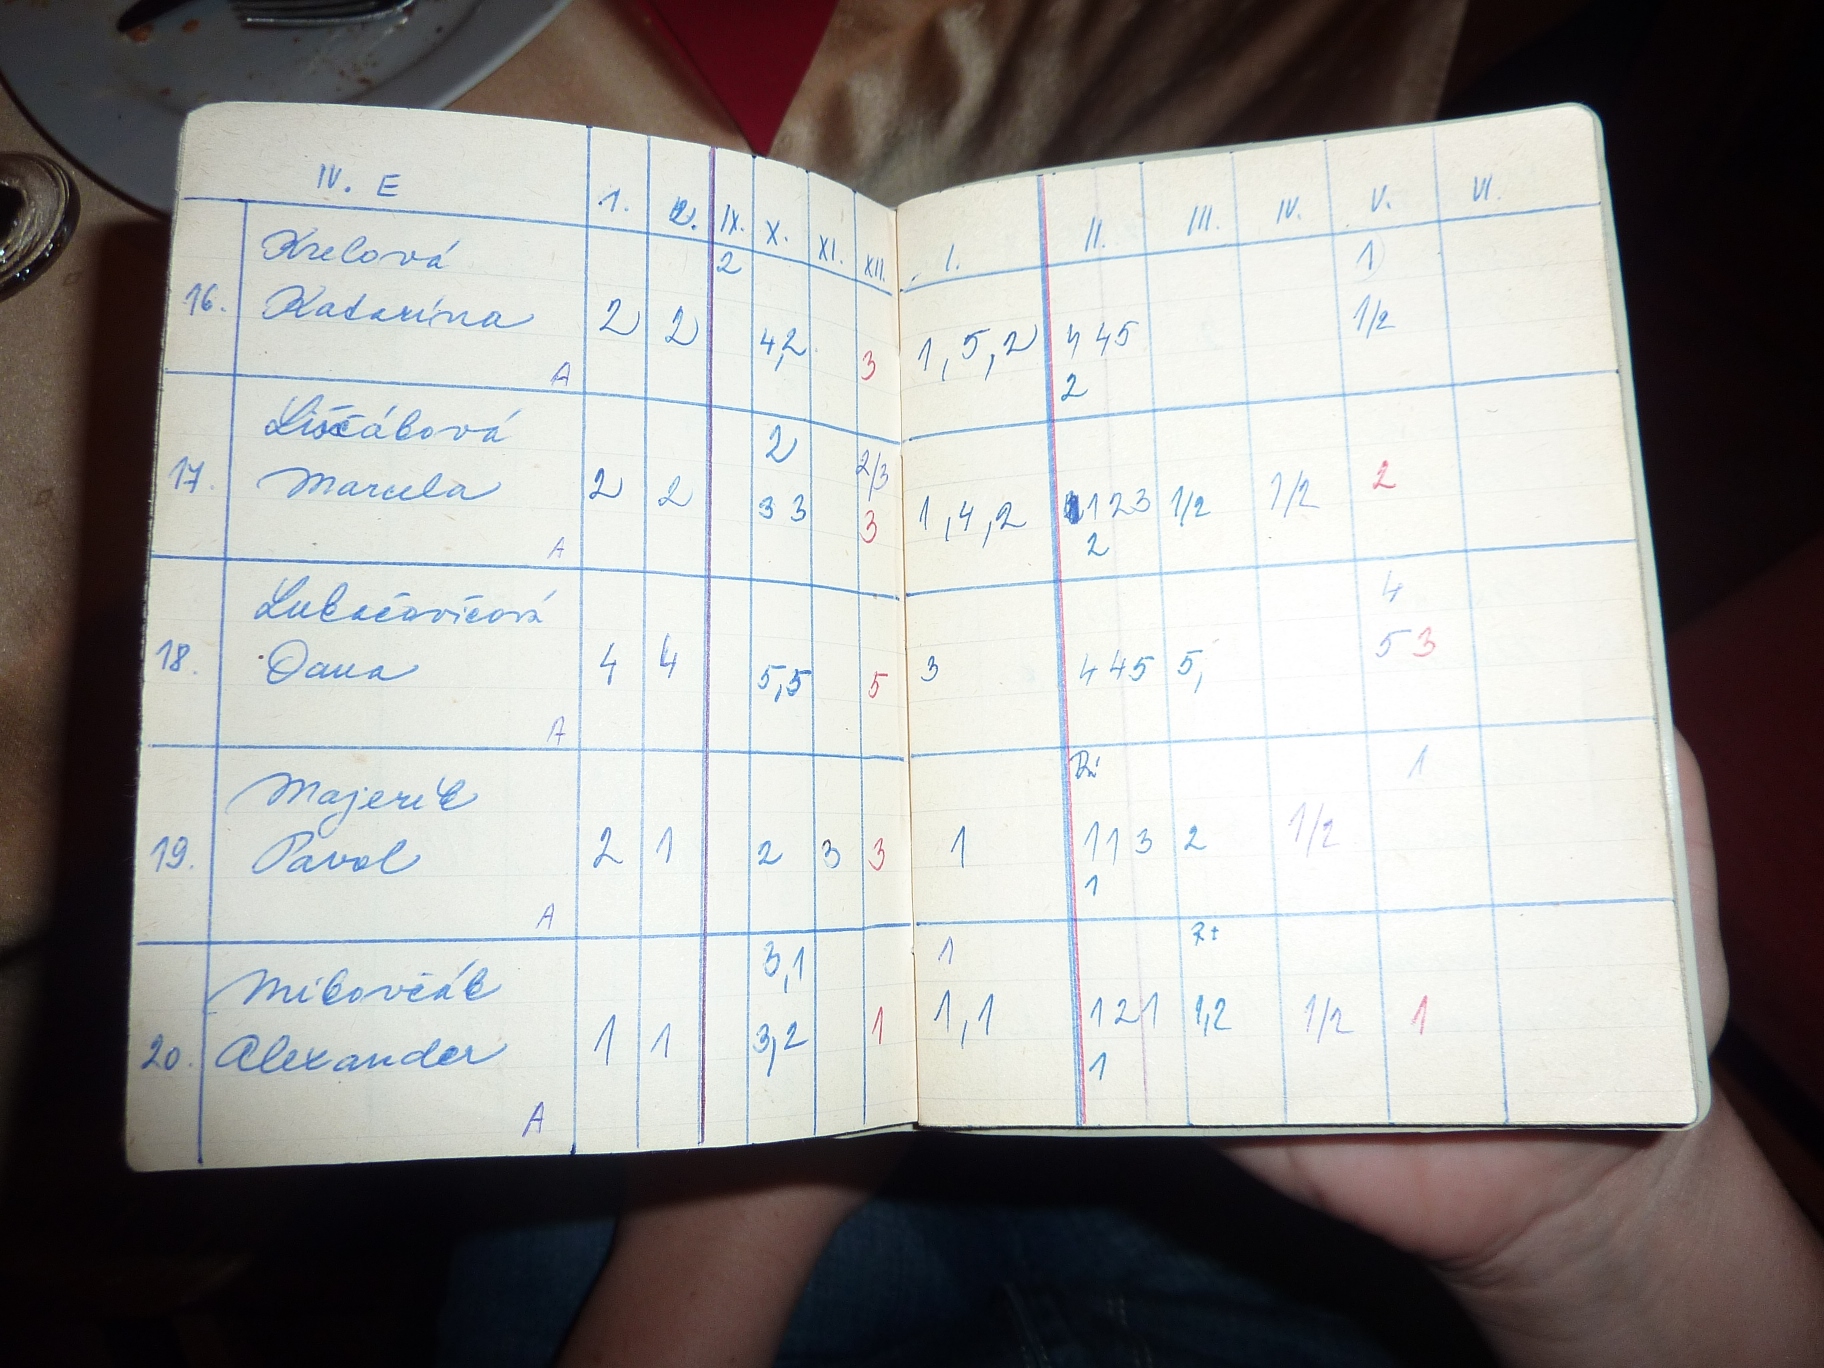 IV. E 1. 2. IX. X. XI. XII. I. II. III. IV. V. VI.
2 1
16. Katarína 2 2 4,2 3 1,5,2 4 4 5 1/2
A 2
2 2/3
17. Marcela 2 2 3 3 3 1,4,2 1 2 3 1/2 1/2 2
A 2
Lukačovičová 4
18. Dana 4 4 5,5 5 3 4 4 5 5, 5 3
A
Majerík 1
19. Pavol 2 1 2 3 3 1 1 1 3 2 1/2
A 1
Mikovčák 3,1 1
20. Alexander 1 1 3,2 1 1,1 1 2 1 1,2 1/2 1
A 1